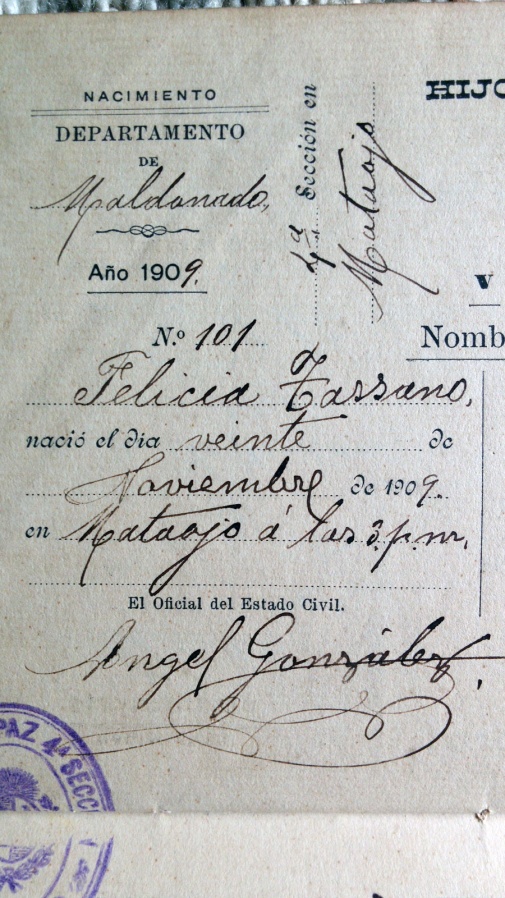 NACIMIENTO
DEPARTAMENTO
DE
Maldonado,
Año 1909.
4ª Sección en
Mataojo
HIJO
V
Nomb
N.º 101
Felicia Tassano,
nació el día veinte de
Noviembre de 1909.
en Mataojo á las 3 p.m.
El Oficial del Estado Civil.
Angel González.
PAZ 4ª SECC